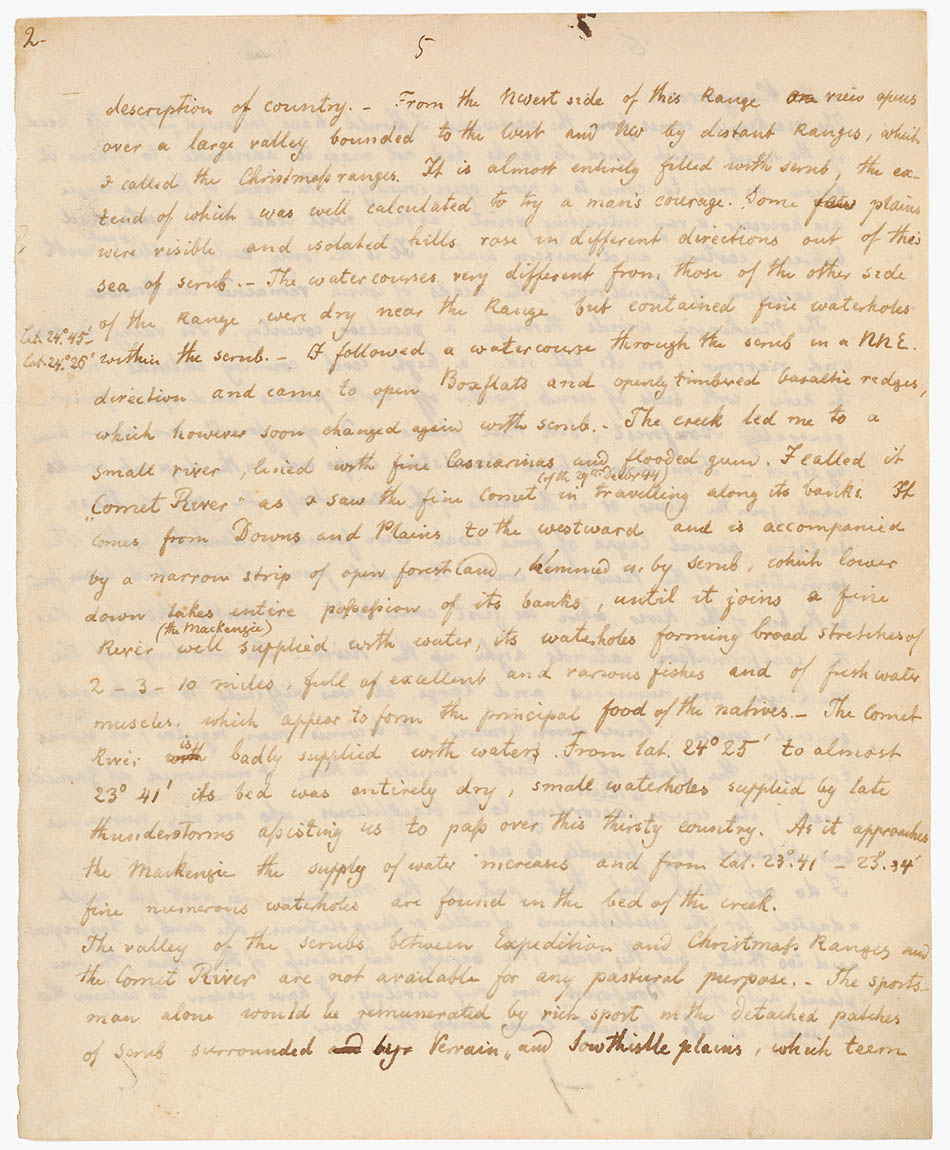 2-
5
5
description of country. - From the NWest side of this Range an view opens
over a large valley bounded to the West and NW by distant Ranges, which
I called the Christmass ranges. It is almost entirely filled with scrub, the ex-
tend of which was well calculated to try a man's courage. Some few plains
were visible and isolated hills rose in different directions out of this
sea of scrub. - The watercourses very different from those of the other side
of the Range were dry near the Range but contained fine waterholes
Lat. 24° 45'
Lat. 24° 26'
within the scrub. - I followed a watercourse through the scrub in a NNE.
direction and came to open Boxflats and openly timbered basaltic redges,
which however soon changed again with scrub. - The creek led me to a
small river, lined with fine Casuarinas and flooded gum. I called it
(of th 29th Decbr 44)
"Comet River" as I saw the fine Comet in travelling along its banks. It
comes from Downs and Plains to the westward and is accompanied
by a narrow strip of open forestland, hemmed in by scrub, which lower
down takes entire possession of its banks, until it joins a fine
(the Mackenzie)
River well supplied with water, its waterholes forming broad stretches of
2 - 3 - 10 miles, full of excellent and various fishes and of fresh water
muscles, which appear to form the principal food of the natives. - The Comet
River with is badly supplied with waters. From lat. 24° 25' to almost
23° 41' its bed was entirely dry, small waterholes supplied by late
thunderstorms assisting us to pass over this thirsty country. As it approaches
the Mackenzie the supply of water increases and from Lat. 23°. 41' - 23°. 34'
fine numerous waterholes are found in the bed of the creek.
The valley of the scrubs between Expedition and Christmass Ranges and
the Comet River are not available for any pastural purpose. - The sports-
man alone would be remunerated by rich sport in the detached patches
of scrub surrounded and by Vervain and Sowthistle plains, which teem